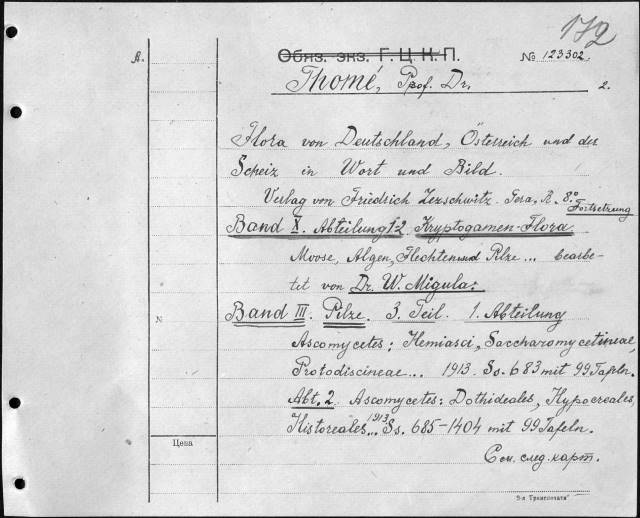 172
A. Обяз. экз. Г. Ц. К. П. № 123302.
Thomé, Prof. Dr. 2.
Flora von Deutschland, Österreich und der
Scheiz in Wort und Bild.
Verlag von Friedrich Zezschwitz. Gera, R. 8°
Fortsetzung
Band X. Abteilung 1-2 Kryptogamen-Flora
Moose, Algen, Flechten und Pilze... bearbe-
tet von Dr. W. Migula:
Band III. Pilze. 3. Teil. 1. Abteilung
N
Ascomycetes: Hemiasci, Saccharomycetineae,
Protodiscineae... 1913. Ss. 683 mit 99 Tafeln.
Abt. 2. Ascomycetes: Dothideales, Hypocreales,
Histoteales... 1913 Ss. 685-1404 mit 99 Tafeln.
Цена
См. след. карт.